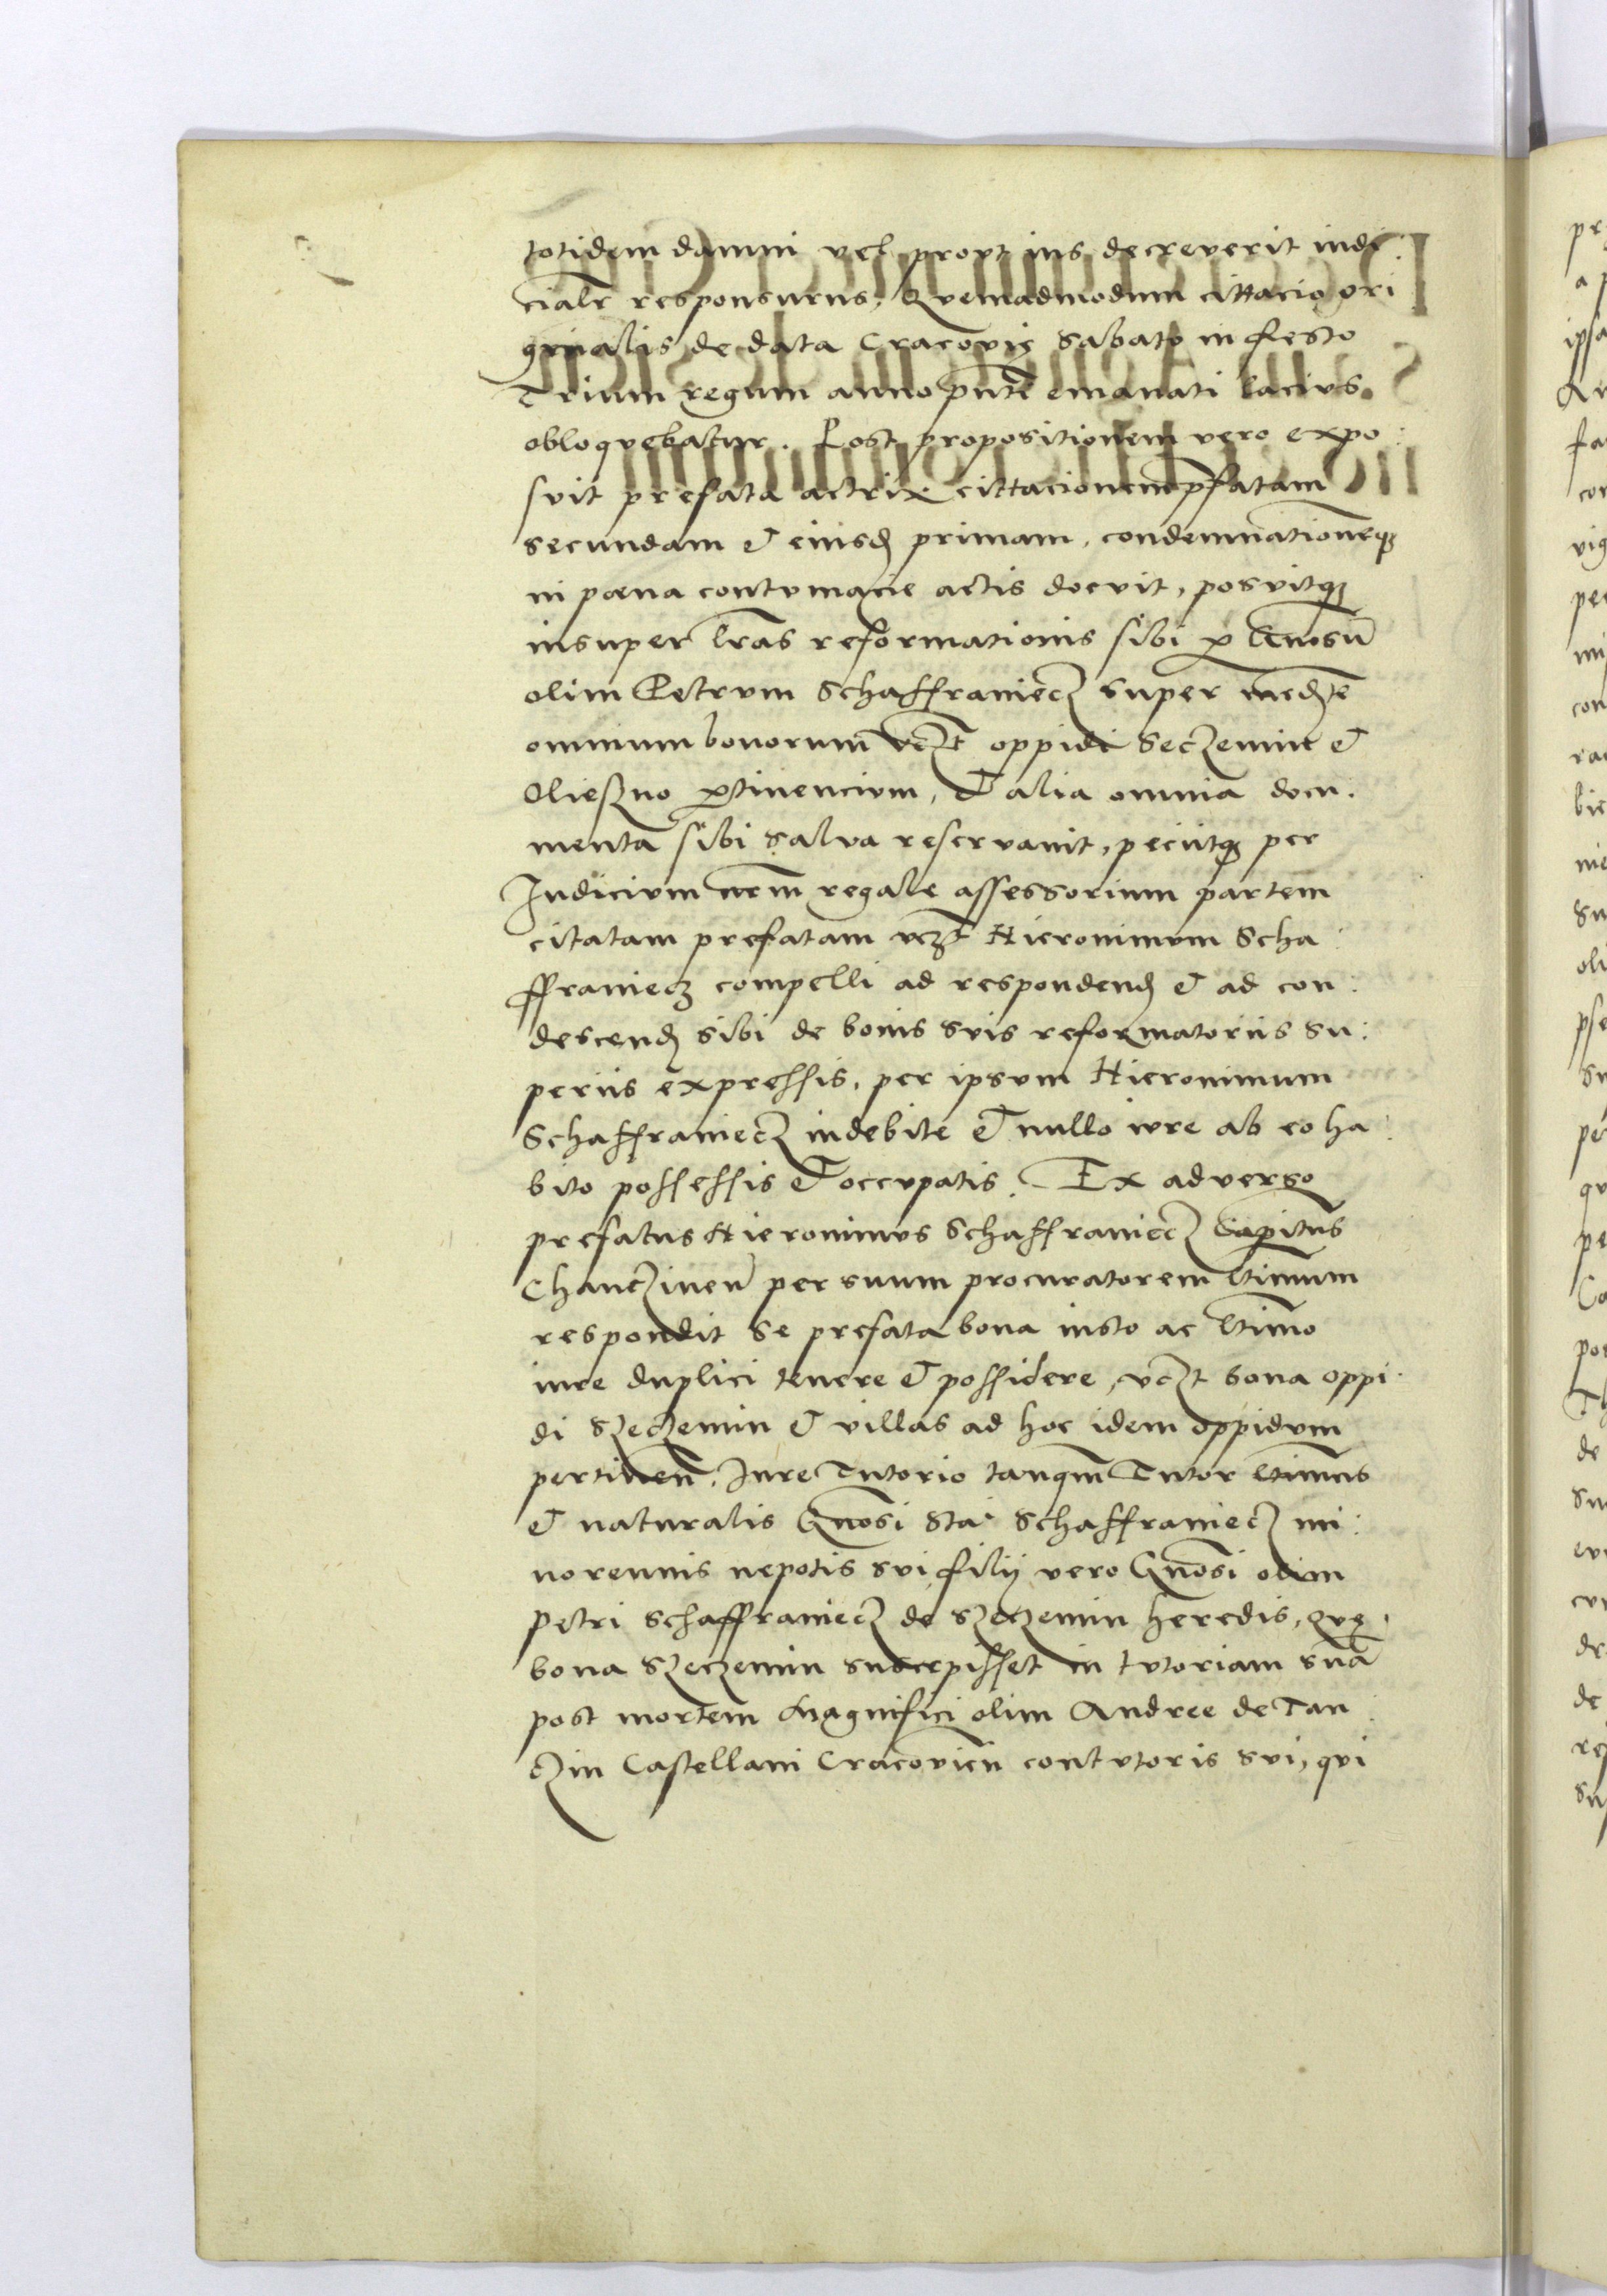 totidem damni vel provt ius decreverit iudi:
cialr responsurus, Qvemadmodum cittacio ori
ginalis de data Cracovię Sabato in festo
Trium regum anno pñte emanati lacivs
obloqvebatur. Post propositionem vero expo:
svit prefata actrix cittacionem pfatam
secundam et eiusd primam, condemnationeq3
in pœna contvmacie actis docvit, posvitq3
insuper lr̃as reformationis sibi p Gnosũ
olim Petrvm Schaffraniecz super medte
omnium bonorum vczt oppidi Seczemin et
Olieszno ptinencivm, Et alia omnia docu:
menta sibi salva reservauit, peciitq3 per
Iudicivm nr̃m regale assessorium partem
citatam prefatam vczt Hieronimvm Scha:
ffraniecz compelli ad respondend et ad con:
descend sibi de bonis svis reformatoriis su:
periis expressis, per ipsvm Hieronimum
Schaffraniecz indebite et nullo ivre ab eo ha:
bito possessis et occvpatis. Ex adverso
prefatus Hieronimvs Schaffraniecz Capitns
Chanczinen̄ per suum procuratorem ltimum
respondit se prefata bona iusto ac ltimo
iure duplici tenere et possidere, vczt bona oppi:
di Szeczemin et villas ad hoc idem oppidvm
pertinen̄. Iure Tutorio tanqm̃ Tutor ltimus
et naturalis Gnosi Sta: Schaffraniecz mi:
norennis nepotis svi filij vero Gnosi olim
Petri Schaffraniecz de Szeczemin heredis, qvę
bona Szeczemin suscepisset in tvtoriam suã
post mortem Magnifici olim Andree de Tan:
czin Castellani Cracovien̄ contvtoris svi, qvi